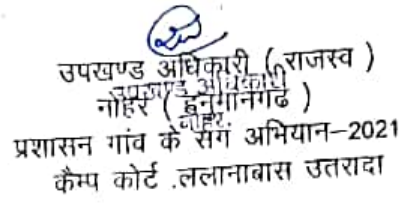 उपखण्ड अधिकारी ( राजस्व )
उपखण्ड अधिकारी
नोहर ( हनुमानगढ )
नोहर
प्रशासन गांव के संग अभियान–2021
कैम्प कोर्ट .ललानाबास उतरादा